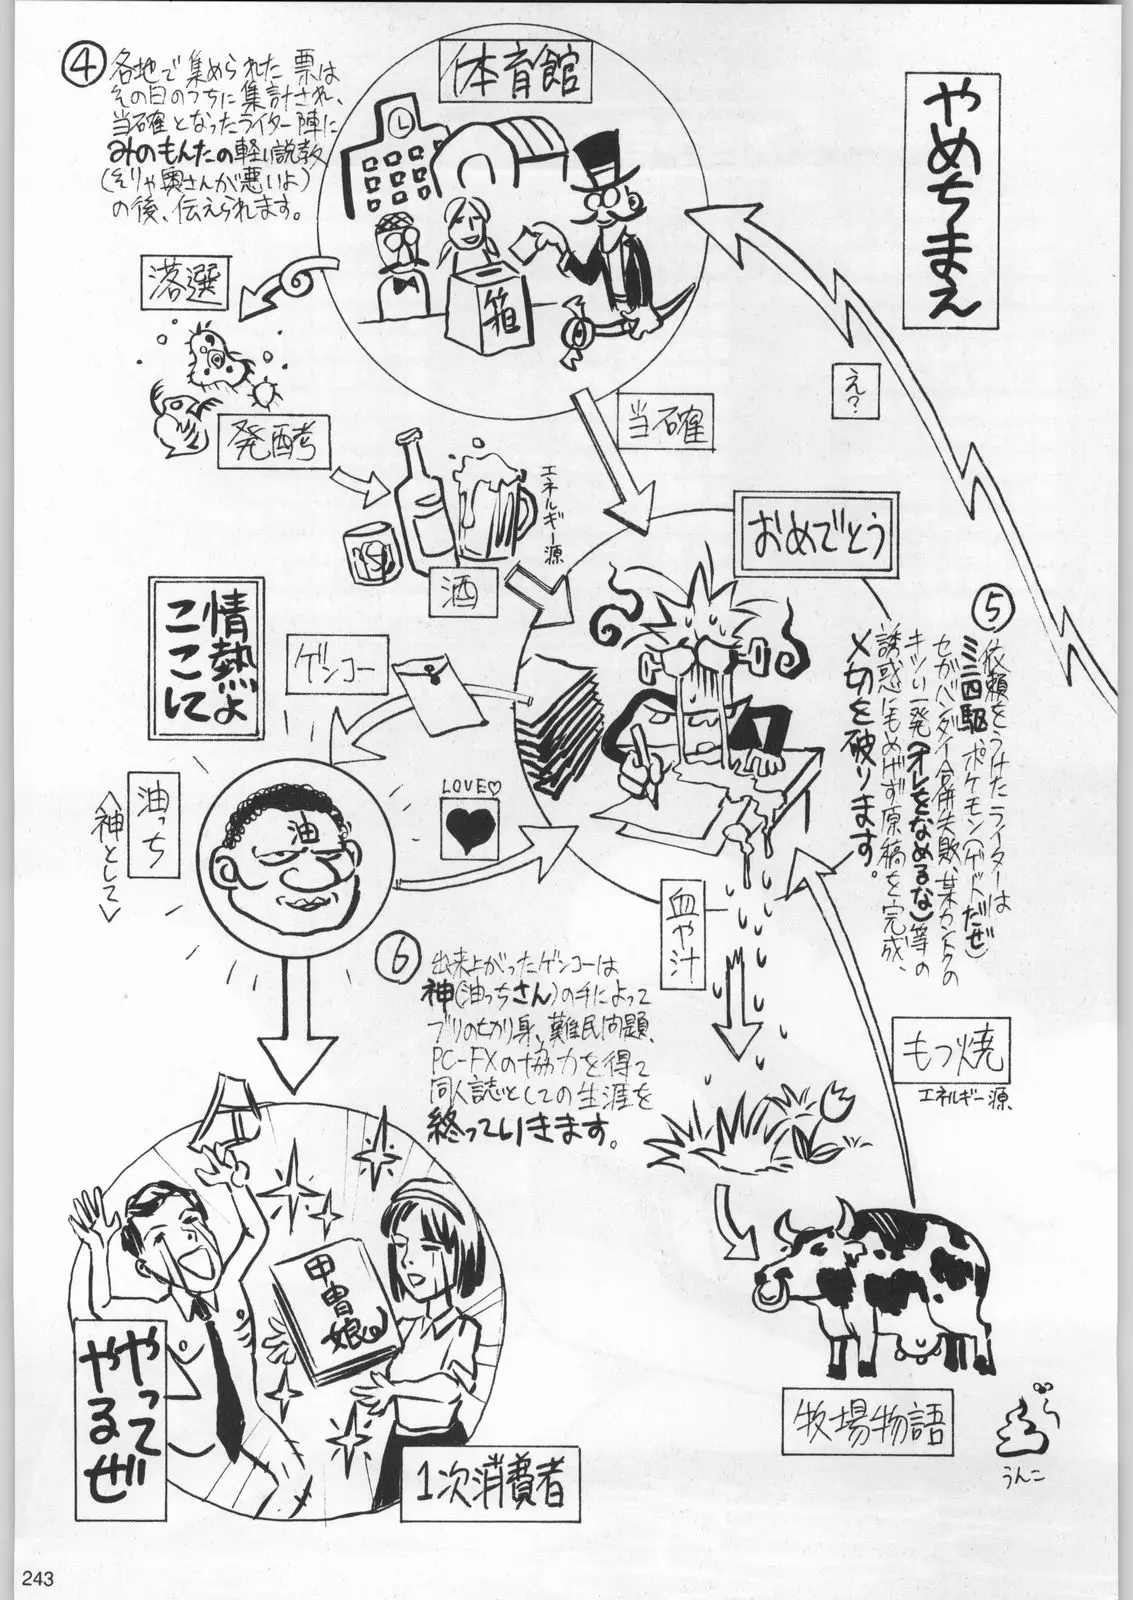 やめちまえ
体育館
④
各地で集められた票は
その日のうちに集計され、
当確となったライター陣に
みのもんたの軽い説教
(そりゃ奥さんが悪いよ)
の後、伝えられます。
箱
落選
え?
当確
発酵
エネルギー源
酒
おめでとう
⑤
依頼をうけたライターは
ミニ四駆、ポケモン(ゲドだぜ)
セガバンダイ合併失敗、某カントクの
キツい一発(オレをなめるな)等の
誘惑にもめげず原稿を完成、
〆切を破ります。
情熱よ
ここに
ゲンコー
LOVE♡
油
油っち
<神として>
血や汁
⑥
出来上がったゲンコーは
神(油っちさん)の手によって
ブリのせり身、難民問題、
PC-FXの協力を得て
同人誌としての生涯を
終っていきます。
もつ焼
エネルギー源
甲冑娘
やって
やるぜ
1次消費者
牧場物語
うんこ
243